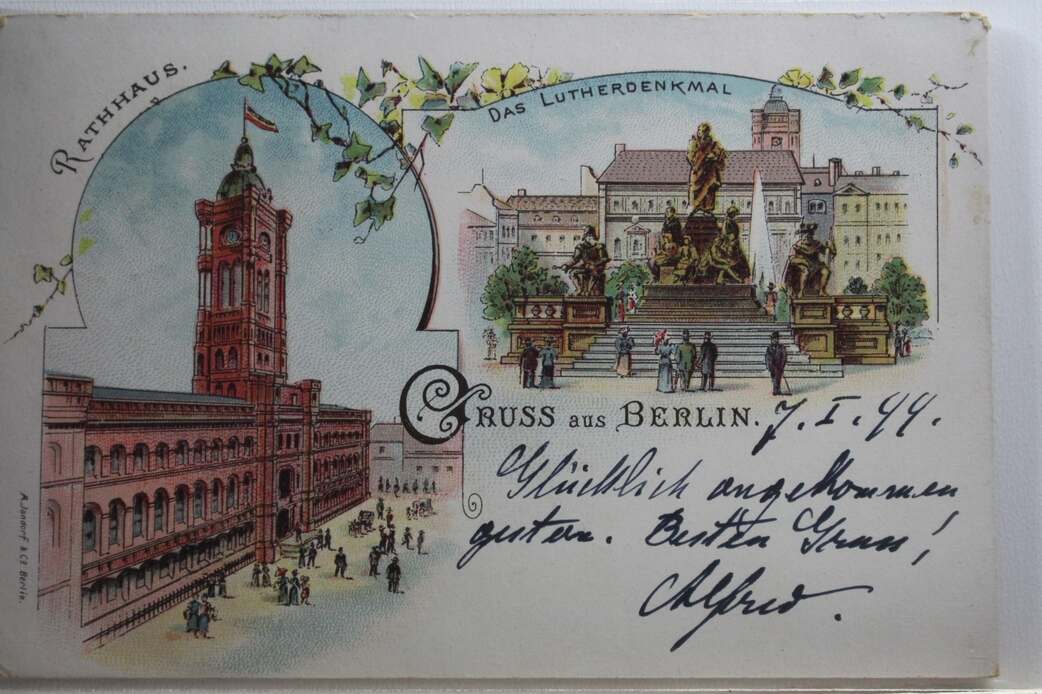 RATHHAUS.
DAS LUTHERDENKMAL
GRUSS AUS BERLIN.
7. I. 99.
Glücklich angekommen
gestern. Besten Gruss!
Alfred.
A. Jandorf & Co. Berlin.